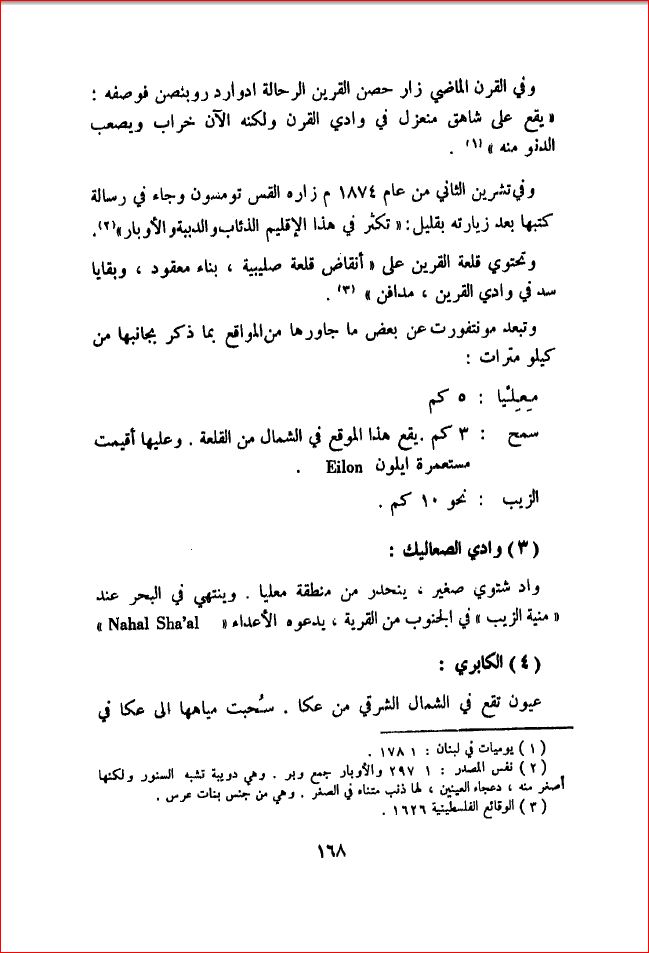 وفي القرن الماضي زار حصن القرين الرحالة ادوارد روبنصن فوصفه :
« يقع على شاهق منعزل في وادي القرن ولكنه الآن خراب ويصعب
الدنو منه » (١) .
وفي تشرين الثاني من عام ١٨٧٤ م زاره القس تومسون وجاء في رسالة
كتبها بعد زيارته بقليل : « تكثر في هذا الإقليم الذئاب والدببة والأوبار »(٢).
وتحتوي قلعة القرين على « أنقاض قلعة صليبية ، بناء معقود ، وبقايا
سد في وادي القرين ، مدافن » (٣) .
وتبعد مونتفورت عن بعض ما جاورها من المواقع بما ذكر بجانبها من
كيلو مترات :
مِعِلْيا : ٥ كم
سمح : ٣ كم . يقع هذا الموقع في الشمال من القلعة . وعليها أقيمت
مستعمرة ايلون Eilon .
الزيب : نحو ١٠ كم .
( ٣ ) وادي الصعاليك :
واد شتوي صغير ، ينحدر من منطقة معليا . وينتهي في البحر عند
« منية الزيب » في الجنوب من القرية ، يدعوه الأعداء « Nahal Sha'al »
( ٤ ) الكابري :
عيون تقع في الشمال الشرقي من عكا . سُحبت مياهها الى عكا في
( ١ ) يوميات في لبنان : ١ ١٧٨ .
( ٢ ) نفس المصدر : ١ ٢٩٧ والأوبار جمع وبر . وهي دويبة تشبه السنور ولكنها
أصغر منه ، دعجاء العينين ، لها ذنب متناه في الصغر . وهي من جنس بنات عرس .
( ٣ ) الوقائع الفلسطينية ١٦٢٦ .
١٦٨